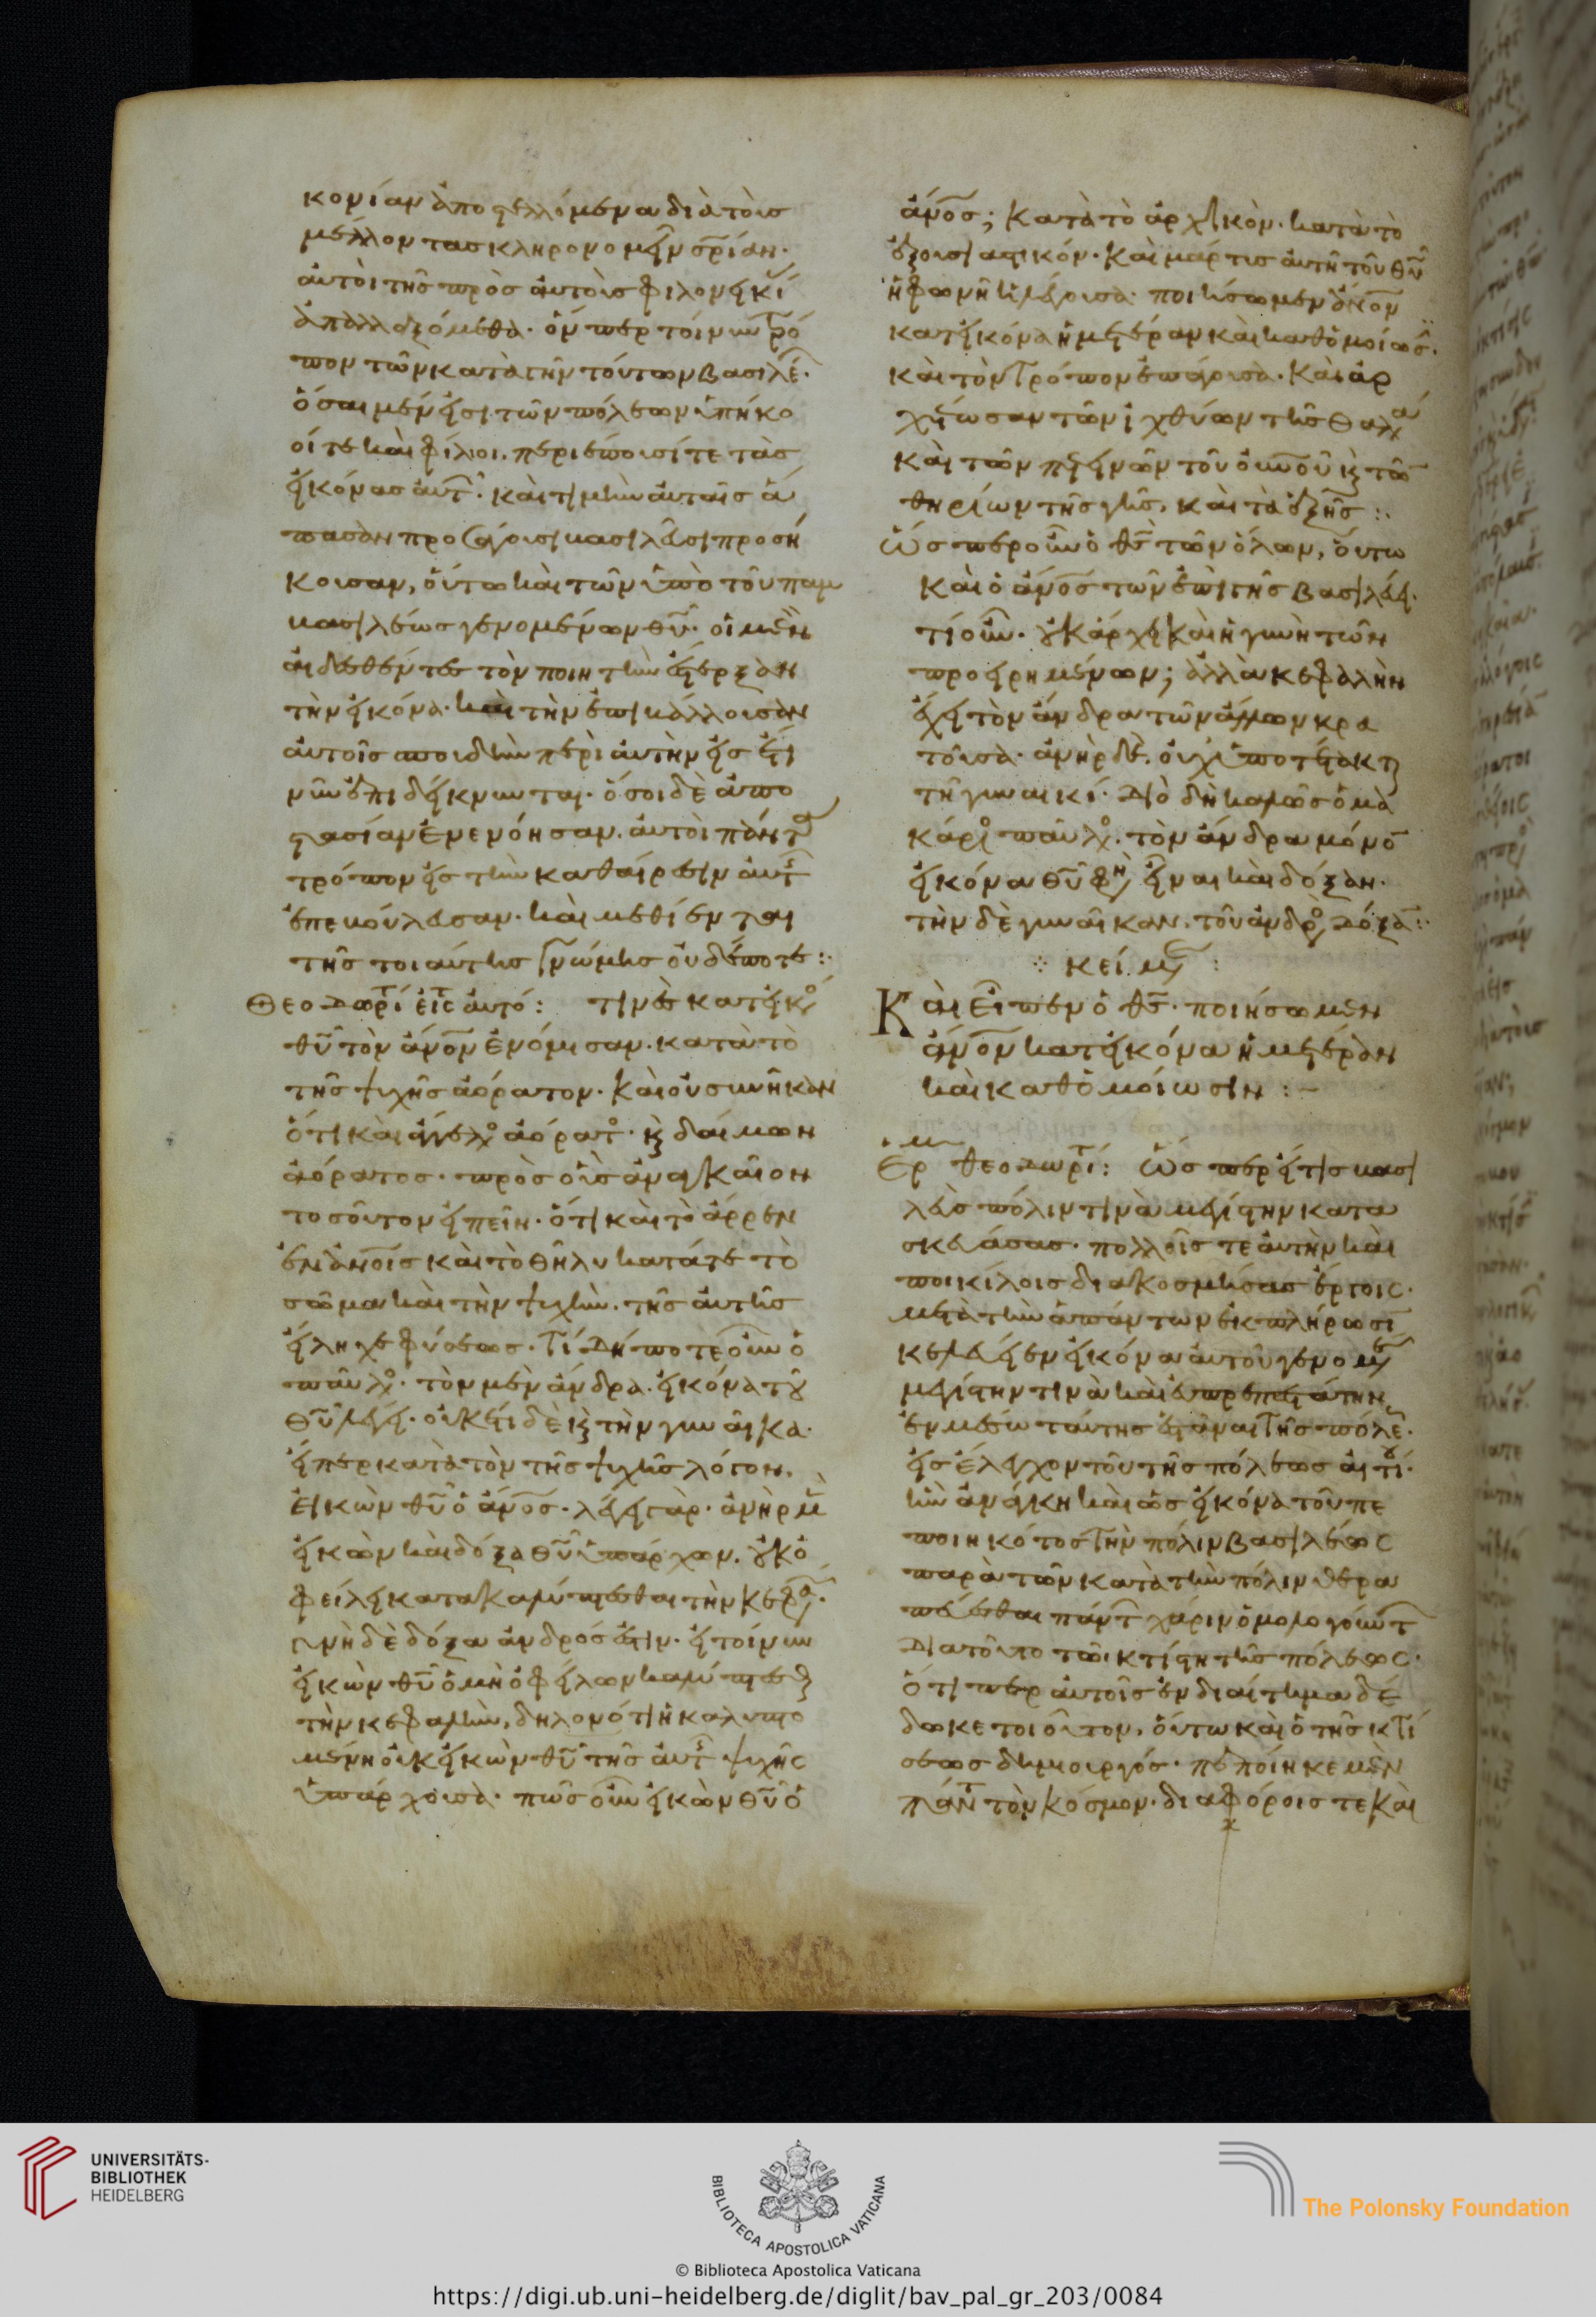 κονίαν ἀποστελλόμενα διὰ τοὺσ
μέλλοντασ κληρονομεῖν σρίαν·
αὐτοὶ τῆσ πρὸσ αὐτοὺσ φιλονεικί
ἀπαλλαξόμεθα· ὅνπερ τοίνυν τρό
πον τῶν κατὰ τὴν τούτων βασιλέ·
ὅσαι μέν εἰσι τῶν πόλεων ὑπήκο
οί τε καὶ φίλιοι. περιέπουσί τε τὰσ
εἰκόνασ αὐτ· καὶ τιμὴν αὐταῖσ ἅ
πασαν προσάγουσι βασιλεῖ προσή
κουσαν, οὕτω καὶ τῶν ὑπὸ τοῦ παμ
βασιλέωσ γενομένων θυ· οἱ μὲν
αἰδεσθέντεσ τὸν ποιητὴν εἷερξαν
τὴν εἰκόνα· καὶ τὴν ἐπιβάλλουσαν
αὐτοῖσ σπουδὴν περὶ αὐτὴν εἰσ ἔτι
νῦν ἐπιδείκνυνται· ὅσοι δὲ ἀπο
στασίαν ἐνενόησαν. αὐτοὶ πάντα
τρόπον εἰσ τὴν καθαίρεσιν αὐτ
ἐπεβούλευσαν· καὶ μεθίενται
τῆσ τοιαύτησ γνώμησ οὐδέποτε:·
Θεοδωρί εἰς αὐτό: τινὲσ κατ εἰκό
θυ τὸν ἀνον ἐνόμισαν· κατὰ τὸ
τῆσ ψυχῆσ ἀόρατον· καὶ οὐ συνῆκαν
ὅτι καὶ ἄγγελο ἀόρατο· κ δαίμων
ἀόρατοσ· πρὸσ οὓσ ἀναγκαῖον
τοσοῦτον εἰπεῖν· ὅτι καὶ τὸ ἄρρεν
ἐν ἀνοισ καὶ τὸ θῆλυ κατά τε τὸ
σῶμα καὶ τὴν ψυχὴν· τῆσ αὐτῆσ
εἴληχε φύσεωσ· Τί δήποτε οὖν ὁ
παῦλο· τὸν μὲν ἄνδρα· εἰκόνα του
θυ λέγει· οὐκέτι δὲ κ τὴν γυναῖκα·
εἴπερ κατὰ τὸν τῆσ ψυχῆσ λόγον.
Εἰκὼν θυ ὁ ἀνοσ· λέγει γάρ· ἀνὴρ μὲ
εἰκὼν καὶ δόξα θυ ὑπάρχων. οὐκ ὀ
φείλει κατακαλύπτεσθαι τὴν κεφα·
γυνὴ δὲ δόξα ἀνδρόσ ἐστιν· εἰ τοίνυν
εἰκὼν θυ ὁ μὴ ὀφείλων καλύπτεσθ
τὴν κεφαλὴν, δηλονότι ἡ καλυπτο
μένη οὐκ εἰκὼν θυ τῆσ αὐτ ψυχῆς
ὑπάρχουσα· πῶσ οὖν εἰκὼν θυ ὁ
ἀνοσ; Κατὰ τὸ ἀρχικὸν· κατὰ τὸ
ἐξουσιαστικόν· Καὶ μάρτυσ αὐτὴ τοῦ θυ
ἡ φωνὴ λέγουσα· ποιήσωμεν ἀνον
κατ εἰκόνα ἡμετέραν καὶ καθ ὁμοίωσ·
καὶ τὸν τρόπον ἐπάγουσα· Καὶ ἀρ
χέτωσαν τῶν ἰχθύων τῆσ θαλα
καὶ τῶν πετεινῶν τοῦ οὐνου κ τῶ
θηρίων τῆσ γῆσ, καὶ τὰ ἑξῆσ:·
Ὥσπερ οὖν ὁ θσ τῶν ὅλων, οὕτω
καὶ ὁ ἀνοσ τῶν ἐπὶ τῆσ βασιλεύει·
τί οὖν· οὐκ ἄρχει καὶ ἡ γυνὴ τῶν
προειρημένων; ἀλλὰ κεφαλὴν
ἔχει τὸν ἄνδρα τῶν ἄλλων κρα
τοῦσα· ἀνὴρ δὲ. οὐχ ὑποτέτακτ
τῇ γυναικί· Διὸ δὴ καλῶσ ὁ μα
κάριο παῦλο· τὸν ἄνδρα μόνο
εἰκόνα θυ φη εἶναι καὶ δόξαν·
τὴν δὲ γυναῖκαν. τοῦ ἀνδρο δόξα:·
κείμε:
Καὶ εἶπεν ὁ θσ· ποιήσωμεν
ἀνον κατ εἰκόνα ἡμετέραν
καὶ καθ ὁμοίωσιν:–
Ερμ θεοδωρί: ὥσπερ εἴ τισ βασι
λεὺσ πόλιν τινὰ μεγίστην κατα
σκευάσασ· πολλοῖσ τε αὐτὴν καὶ
ποικίλοισ διακοσμήσασ ἔργοις·
μετὰ τὴν ἁπάντων ἐκπλήρωσι
κελεύσειεν εἰκόνα αὐτοῦ γενομέ
μεγίστην τινὰ καὶ εὐπρεπεστάτην
ἐν μέσω ταύτησ ἑστάναι τῆσ πόλε·
εἰσ ἔλεγχον τοῦ τῆσ πόλεωσ αἰτίου·
ἣν ἀνάγκη καὶ ὡσ εἰκόνα τοῦ πε
ποιηκότοσ τὴν πόλιν βασιλέως
παρὰ τῶν κατὰ τὴν πόλιν θερα
πεύεσθαι πάντ χάριν ὁμολογούντ
διὰ τοῦτο τῶι κτίστη τῆσ πόλεως·
ὅτιπερ αὐτοῖσ ἐνδιαίτημα δέ
δωκε τοιοῦτον, οὕτω καὶ ὁ τῆσ κτί
σεωσ δημιουργόσ· πεποίηκε μὲν
πάντ τὸν κόσμον· διαφόροισ τε καὶ
UNIVERSITÄTS-
BIBLIOTHEK
HEIDELBERG
BIBLIOTECA APOSTOLICA VATICANA
The Polonsky Foundation
© Biblioteca Apostolica Vaticana
https://digi.ub.uni-heidelberg.de/diglit/bav_pal_gr_203/0084